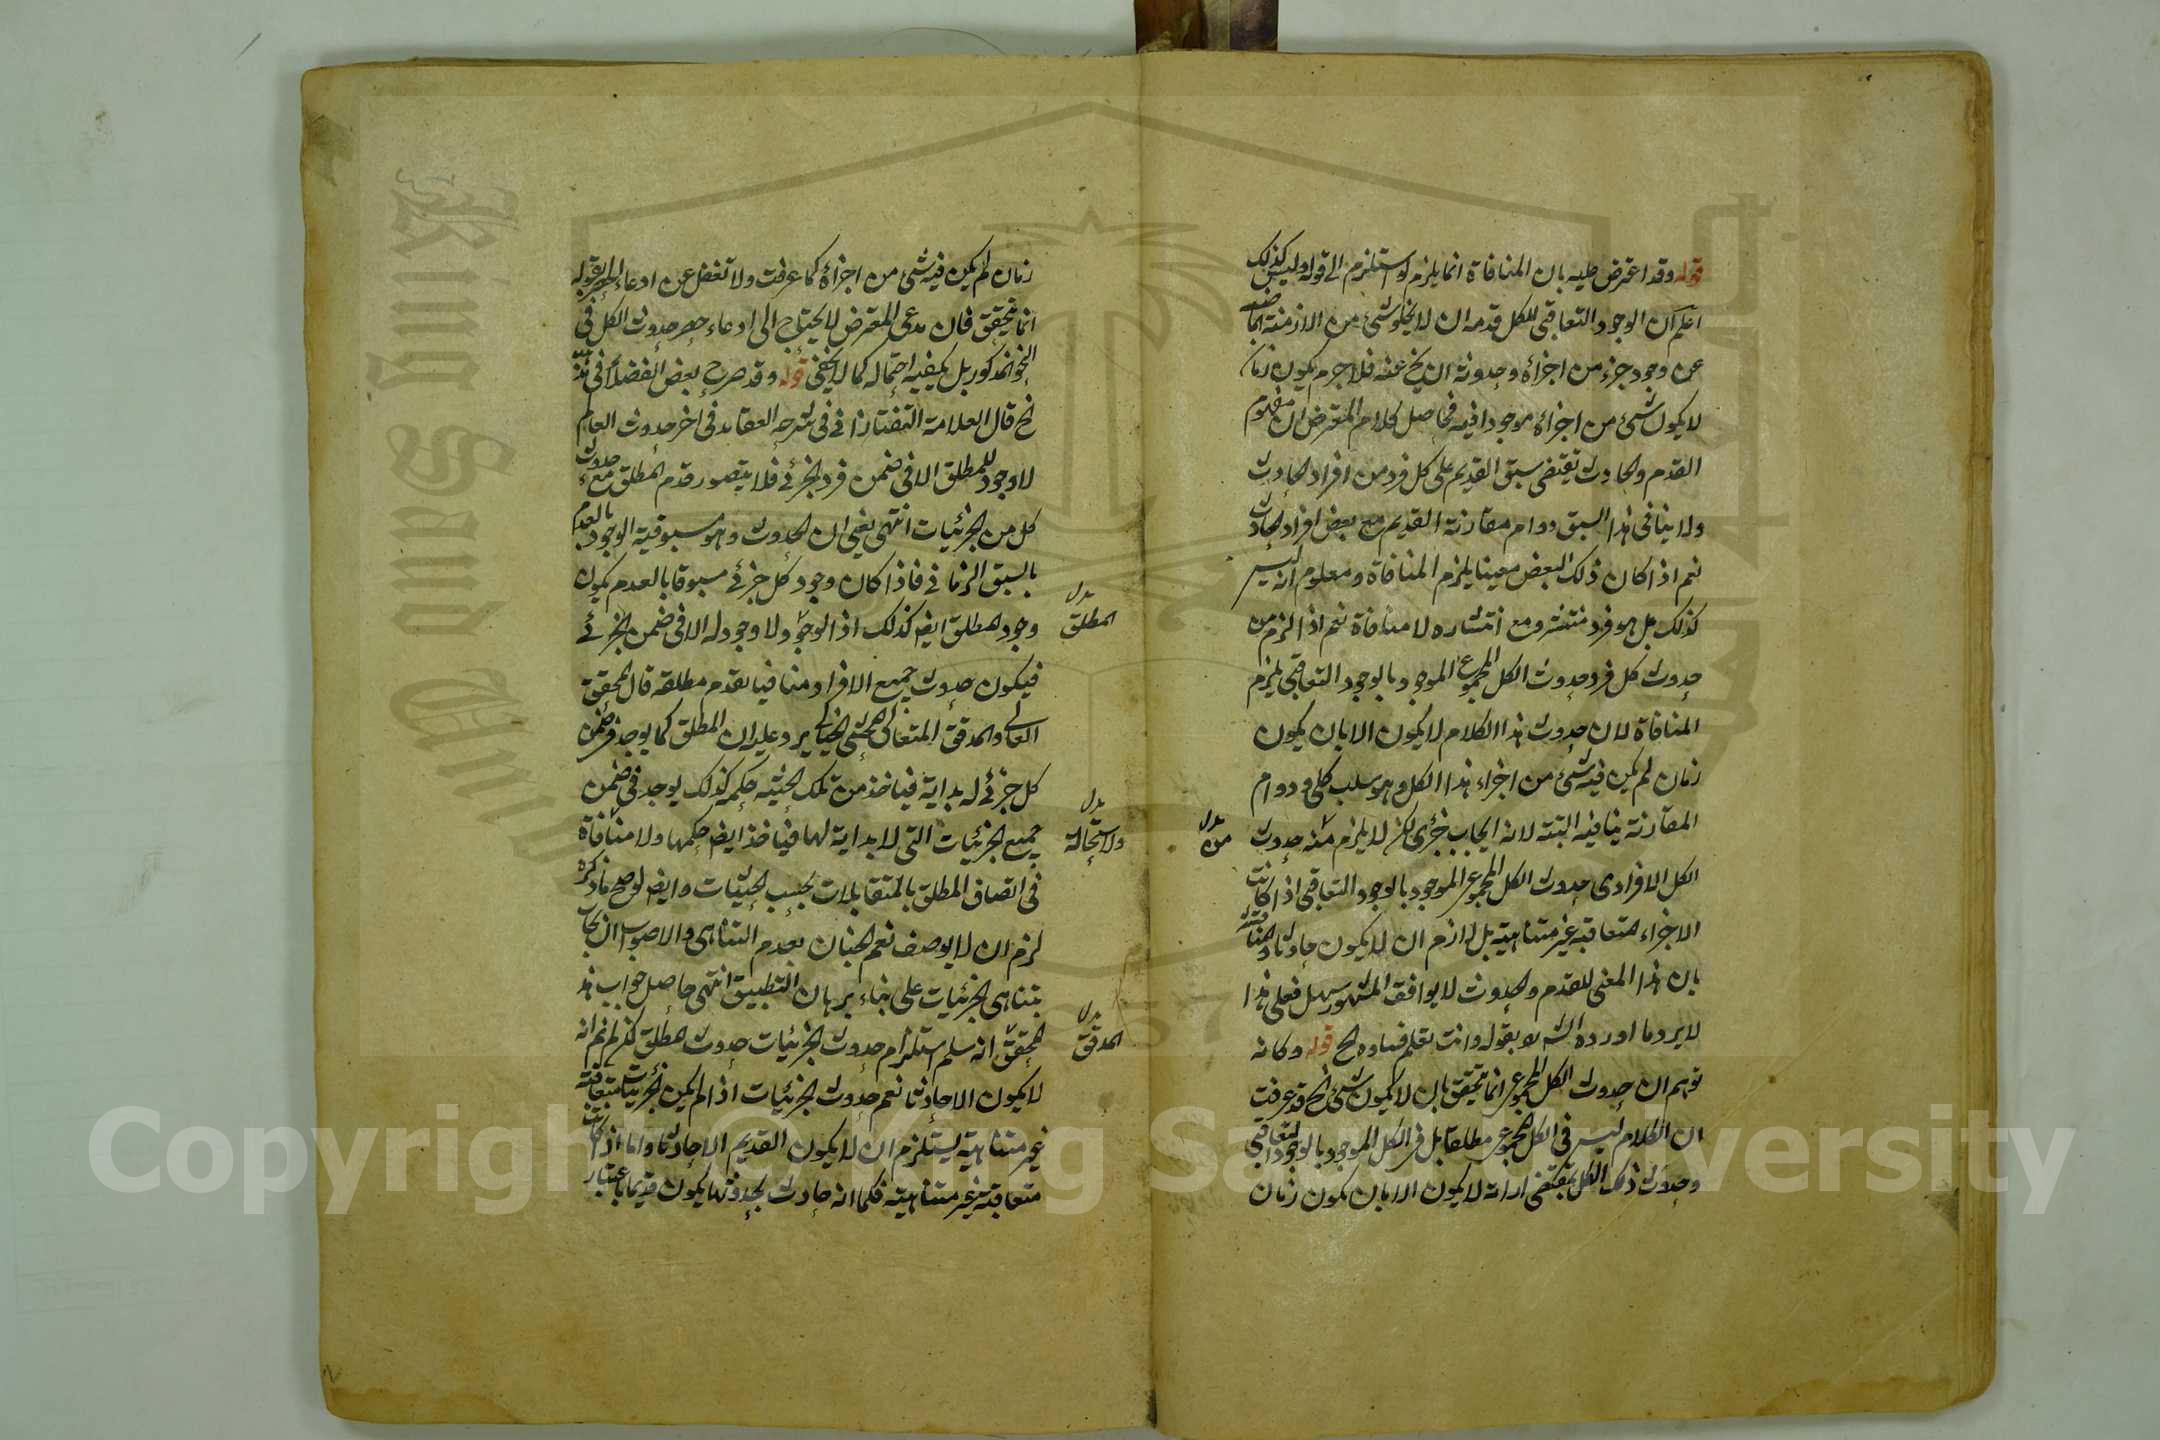 قوله وقد اعترض عليه بان المنافاة انما يلزم لو استلزم الى قوله وليس كذلك
اعلم ان الوجود التعاقبي للكل قدمه ان لا يخلو شئ من الازمنة الماضية
عن وجود جزء من اجزائه وحدوثه ان يخ عنه فلاجرم يكون زمان
لا يكون شئ من اجزائه موجودا فيه فحاصل كلام المعترض ان مفهوم
القدم والحادث يقتضى سبق القديم على كل فرد من افراد الحادث
ولا ينافى هذا السبق دوام مقارنة القديم مع بعض افراد الحادث
نعم اذا كان ذلك البعض معينا يلزم المنافاة ومعلوم انه ليس
كذلك بل هو فرد منتشر ومع انتشاره لا منافاة نعم اذا لزم من
حدوث كل فرد حدوث الكل المجموع الموجود بالوجود التعاقبى يلزم
المنافاة لان حدوث هذا الكلام لا يكون الا بان يكون
زمان لم يكن فيه شئ من اجزاء هذا الكل وهو سلب كلى ودوام
المقارنة ينافيه البتة لانه ايجاب جزئى لكن لا يلزم منه حدوث
بدل
من
الكل الافرادى حدوث الكل المجموعى الموجود بالوجود التعاقبى اذا كانت
الاجزاء متعاقبة غير متناهية بل لازم ان لا يكون حادثا
بان هذا المعنى للقدم والحدوث لا يوافق المشهور سهل فعلى هذا
لا يرد ما اورده الش بقوله وانت تعلم فساده الخ قوله وكانه
توهم ان حدوث الكل المجموعى انما يتحقق بان لا يكون شئ الخ قد عرفت
ان الكلام ليس فى الكل المجموعى مطلقا بل فى الكل الموجود بالوجود التعاقبى
وحدوث ذلك الكل يقتضى ازانه لا يكون الا بان يكون زمان
زمان لم يكن فيه شئ من اجزائه كما عرفت ولا تغفل عن ادعاء الحصر بقوله
انما يتحقق فان مدعى المعترض لا يحتاج الى ادعاء حصر حدوث الكل فى
النحو المذكور بل يكفيه احتماله كما لا يخفى قوله وقد صرح بعض الفضلاء فى هذ
الخ قال العلامة التفتازانى فى شرحه العقائد فى اخر حدوث العالم
لا وجود للمطلق الا فى ضمن فرد الجزئى فلا يتصور قدم المطلق مع حدوث
كل من الجزئيات انتهى يعنى ان الحدوث وهو مسبوقية الوجود بالعدم
بالسبق الزمانى فاذا كان وجود كل جزئى مسبوقا بالعدم يكون
وجود المطلق ايض كذلك اذ الوجود لا وجود له الا فى ضمن الجزئى
بدل
المطلق
فيكون حدوث جميع الافراد منافيا لقدم مطلقه قال المحقق
العالى والمدقق المتعالى المحشى الخيالى يرد عليه ان المطلق كما يوجد فى ضمن
كل جزئى له بداية فياخذ من تلك الحيثية حكمه كذلك يوجد فى ضمن
جميع الجزئيات التى لا بداية لها فياخذ ايض حكمها ولا منافاة
بدل
ولا استحالة
فى اتصاف المطلق بالمتقابلات بحسب الحيثيات وايض لو صح ما ذكره
لزم ان لا يوصف نعم الجنان بعدم التناهى والاصوب ان يجاب
بتناهى الجزئيات على بناء برهان التطبيق انتهى حاصل جواب هذ
المحقق انه سلم استلزام حدوث الجزئيات حدوث المطلق لكن لم نم انه
بدل
المدقق
لا يكون الا حادثا نعم حدوث الجزئيات اذا لم يكن الجزئيات متعاقبة
غير متناهية يستلزم ان لا يكون القديم الا حادثا واما اذا كانت
متعاقبة غير متناهية فكما انه حادث بحدوثها يكون قديما باعتبار
King Saud University
Copyright © King Saud University
1957